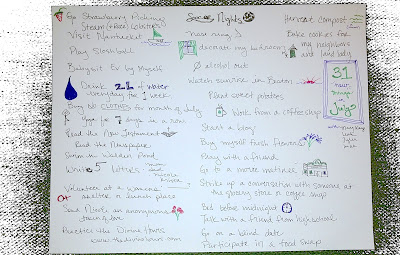 Go Strawberry Picking
Steam (+ Free) lobsters
Visit Nantucket
Play Skeeball
Babysit Ev by Myself
Drink 2L of water
everyday for 1 week
Buy NO CLOTHES for month of July
Yoga for 7 days in a row
Read the New Testament
Read the Newspaper
Swim in Walden Pond
Write 5 letters
Volunteer at a women's
shelter or lunch place
Send Nicole an anonymous
Practice the Divine Hours
www.thedivinehours.com
Social Nights
Nose ring
decorate my bedroom
alcohol out
Watch sunrise in Boston
Plant sweet potatoes
Work from a coffee shop
Start a blog
Buy myself fresh flowers
Pray with a friend
Go to a movie matinee
Strike up a conversation with someone at
the grocery store or coffee shop
Bed before midnight
Talk with a friend from high school
Go on a blind date
Participate in a food swap
Harvest compost
Bake cookies for
my neighbors
and landlady
31
new
things
in
July